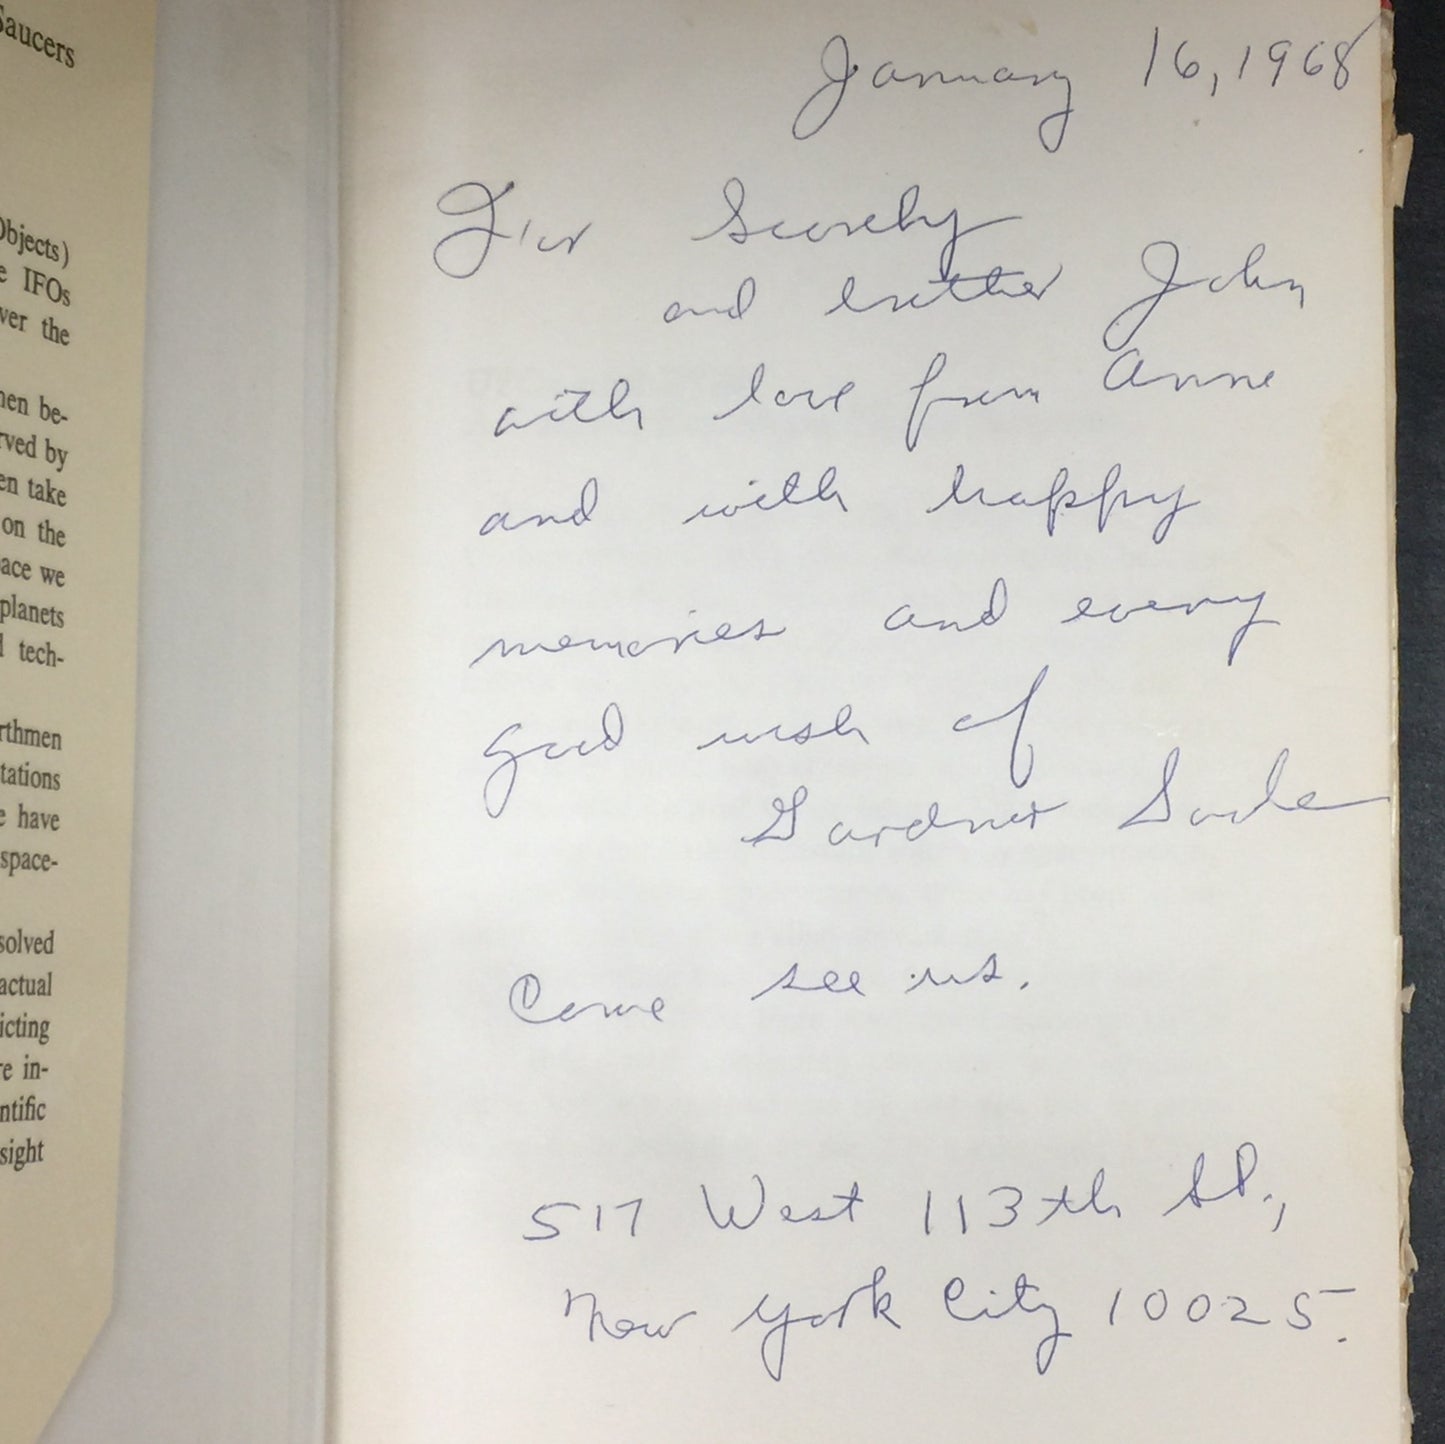 Saucers
Objects)
e IFOs
ver the
hen be-
rved by
en take
on the
pace we
planets
l tech-
rthmen
tations
e have
space-
solved
actual
icting
re in-
ntific
sight
January 16, 1968
For
and brother John
with love from Anne
and with happy
memories and every
good wish of
Gardner Soule
Come see us.
517 West 113th St.,
New York City 10025.